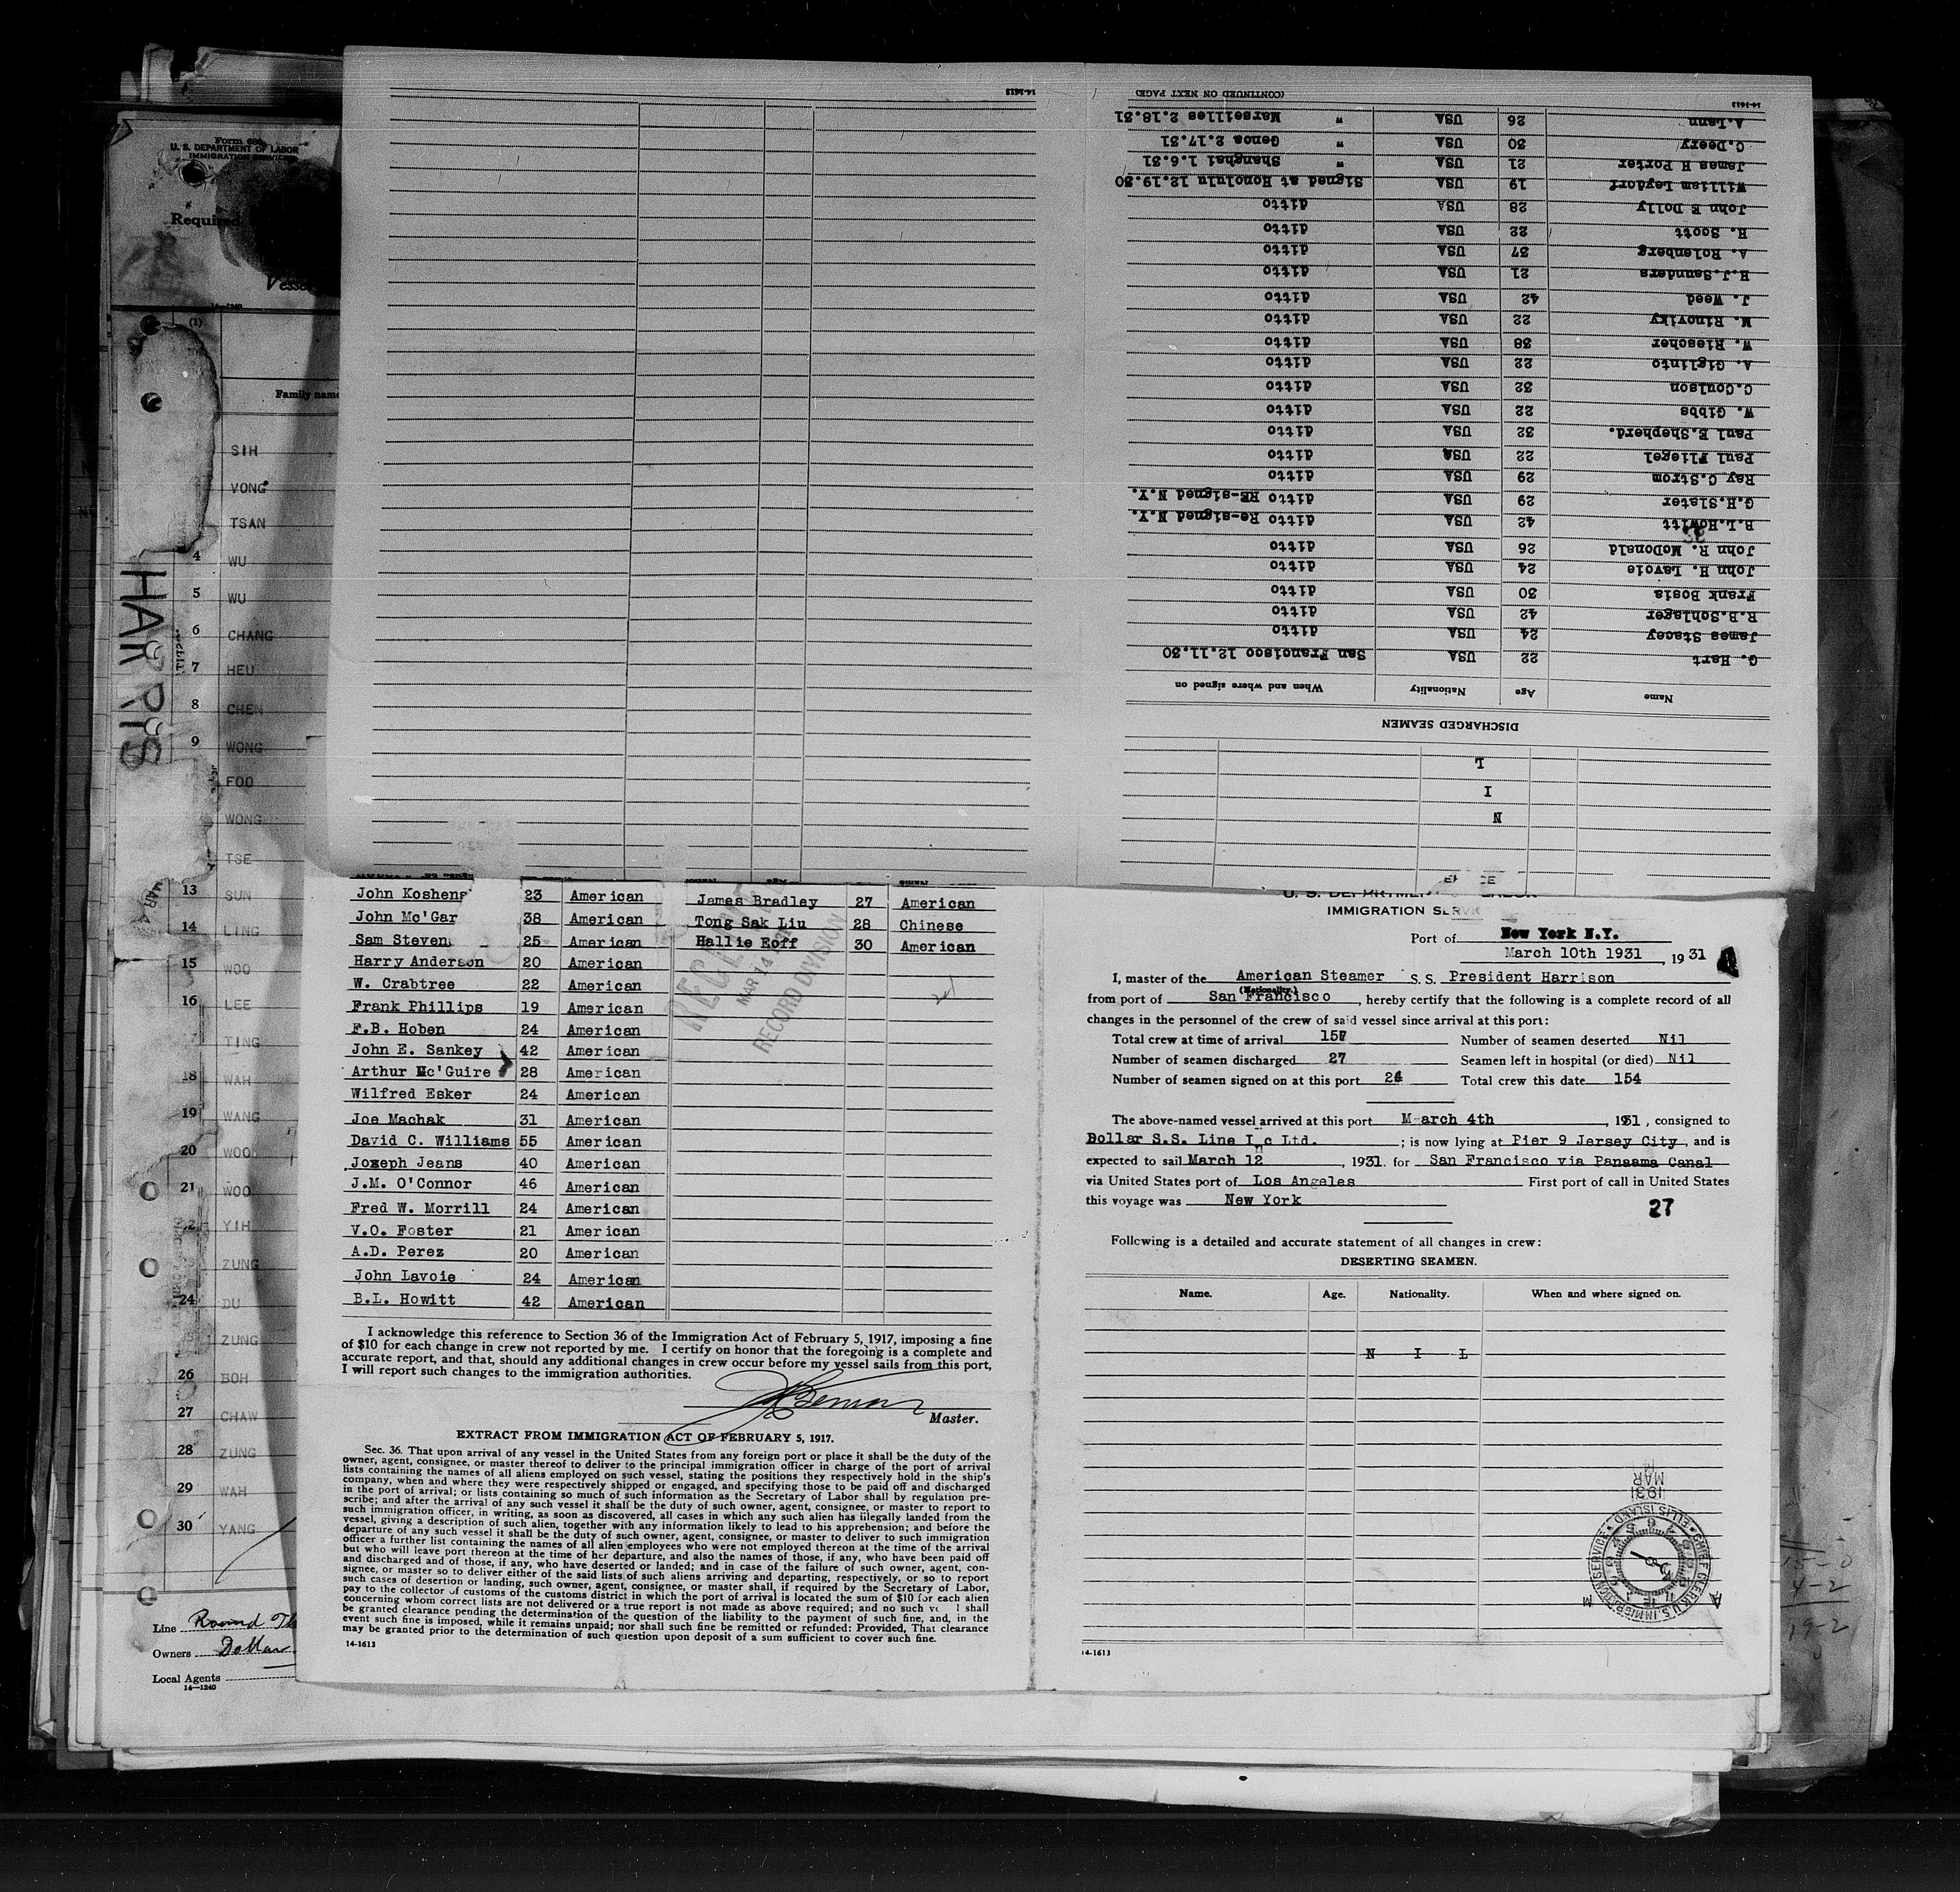 Form 680
U. S. DEPARTMENT OF LABOR
IMMIGRATION SERVICE
Required
Vessel
14-1240
(1)
Family name
SIH
VONG
TSAN
4 WU
5 WU
6 CHANG
7 HEU
8 CHEN
9 WONG
FOO
WONG
TSE
13 SUN
14 LING
15 WOO
16 LEE
TING
18 WAH
19 WANG
20 WOO
21 WOO
YIH
ZUNG
24 DU
ZUNG
26 BOH
27 CHAW
28 ZUNG
29 WAH
30 YANG
HARRIS
MAR 4
Line Round
Owners Dollar
Local Agents
14-1240
14-1613
N
I
L
DISCHARGED SEAMEN
Name Age Nationality When and where signed on
G. Hart 22 USA San Francisco 12.11.30
James Stacey 24 USA ditto
R.B.Schlager 42 USA ditto
Frank Bosia 30 USA ditto
John H. Lavoie 24 USA ditto
John R. McDonald 26 USA ditto
B.L.Howitt 42 USA ditto Re-signed N.Y.
G.H.Slater 29 USA ditto RE-signed N.Y.
Ray C.Strom 29 USA ditto
Paul Fliegel 22 USA ditto
Paul E.Shepherd. 32 USA ditto
W. Gibbs 22 USA ditto
C.Coulson 32 USA ditto
A. Giglinto 22 USA ditto
W. Riescher 38 USA ditto
M. Rinoviky 22 USA ditto
J. Weed 42 USA ditto
H.J.Saunders 21 USA ditto
A. Rolenberg 37 USA ditto
H. Scott 22 USA ditto
John E Dolly 28 USA ditto
William Leydorf 19 USA Signed at Honolulu 12.19.30
James H Porter 21 USA " Shanghai 1.6.31
C.Deery 30 USA " Genoa 2.17.31
A.Lann 26 USA " Marseilles 2.18.31
14-1613
(CONTINUED ON NEXT PAGE)
John Koshens 23 American James Bradley 27 American
John Mc'Gar 38 American Tong Sak Liu 28 Chinese
Sam Steven 25 American Hallie Eoff 30 American
Harry Anderson 20 American
W. Crabtree 22 American
Frank Phillips 19 American
F.B. Hoben 24 American
John E. Sankey 42 American
Arthur Mc'Guire 28 American
Wilfred Esker 24 American
Joe Machak 31 American
David C. Williams 55 American
Joseph Jeans 40 American
J.M. O'Connor 46 American
Fred W. Morrill 24 American
V.O. Foster 21 American
A.D. Perez 20 American
John Lavoie 24 American
B.L. Howitt 42 American
MAR 14
RECORD DIVISION
I acknowledge this reference to Section 36 of the Immigration Act of February 5, 1917, imposing a fine
of $10 for each change in crew not reported by me. I certify on honor that the foregoing is a complete and
accurate report, and that, should any additional changes in crew occur before my vessel sails from this port,
I will report such changes to the immigration authorities.
Master.
EXTRACT FROM IMMIGRATION ACT OF FEBRUARY 5, 1917.
Sec. 36. That upon arrival of any vessel in the United States from any foreign port or place it shall be the duty of the
owner, agent, consignee, or master thereof to deliver to the principal immigration officer in charge of the port of arrival
lists containing the names of all aliens employed on such vessel, stating the positions they respectively hold in the ship's
company, when and where they were respectively shipped or engaged, and specifying those to be paid off and discharged
in the port of arrival; or lists containing so much of such information as the Secretary of Labor shall by regulation pre-
scribe; and after the arrival of any such vessel it shall be the duty of such owner, agent, consignee, or master to report to
such immigration officer, in writing, as soon as discovered, all cases in which any such alien has illegally landed from the
vessel, giving a description of such alien, together with any information likely to lead to his apprehension; and before the
departure of any such vessel it shall be the duty of such owner, agent, consignee, or master to deliver to such immigration
officer a further list containing the names of all alien employees who were not employed thereon at the time of the arrival
but who will leave port thereon at the time of her departure, and also the names of those, if any, who have been paid off
and discharged and of those, if any, who have deserted or landed; and in case of the failure of such owner, agent, con-
signee, or master so to deliver either of the said lists of such aliens arriving and departing, respectively, or so to report
such cases of desertion or landing, such owner, agent, consignee, or master shall, if required by the Secretary of Labor,
pay to the collector of customs of the customs district in which the port of arrival is located the sum of $10 for each alien
concerning whom correct lists are not delivered or a true report is not made as above required; and no such ve l shall
be granted clearance pending the determination of the question of the liability to the payment of such fine, and, in the
event such fine is imposed, while it remains unpaid; nor shall such fine be remitted or refunded: Provided, That clearance
may be granted prior to the determination of such question upon deposit of a sum sufficient to cover such fine.
14-1613
U. S. DEPARTMENT OF LABOR
IMMIGRATION SERVICE
Port of New York N.Y.
March 10th 1931, 1931
I, master of the American Steamer S.S. President Harrison
(Nationality.)
from port of San Francisco, hereby certify that the following is a complete record of all
changes in the personnel of the crew of said vessel since arrival at this port:
Total crew at time of arrival 157 Number of seamen deserted Nil
Number of seamen discharged 27 Seamen left in hospital (or died) Nil
Number of seamen signed on at this port 24 Total crew this date 154
The above-named vessel arrived at this port March 4th, 1931, consigned to
Dollar S.S. Line Inc Ltd. ; is now lying at Pier 9 Jersey City, and is
expected to sail March 12, 1931. for San Francisco via Panaama Canal
via United States port of Los Angeles First port of call in United States
this voyage was New York
27
Following is a detailed and accurate statement of all changes in crew:
DESERTING SEAMEN.
Name. Age. Nationality. When and where signed on.
N I L
1931
MAR
CHIEF CLERK U.S. IMMIGRATION SERVICE
ELLIS ISLAND
14-1613
15-0
4-2
19-2